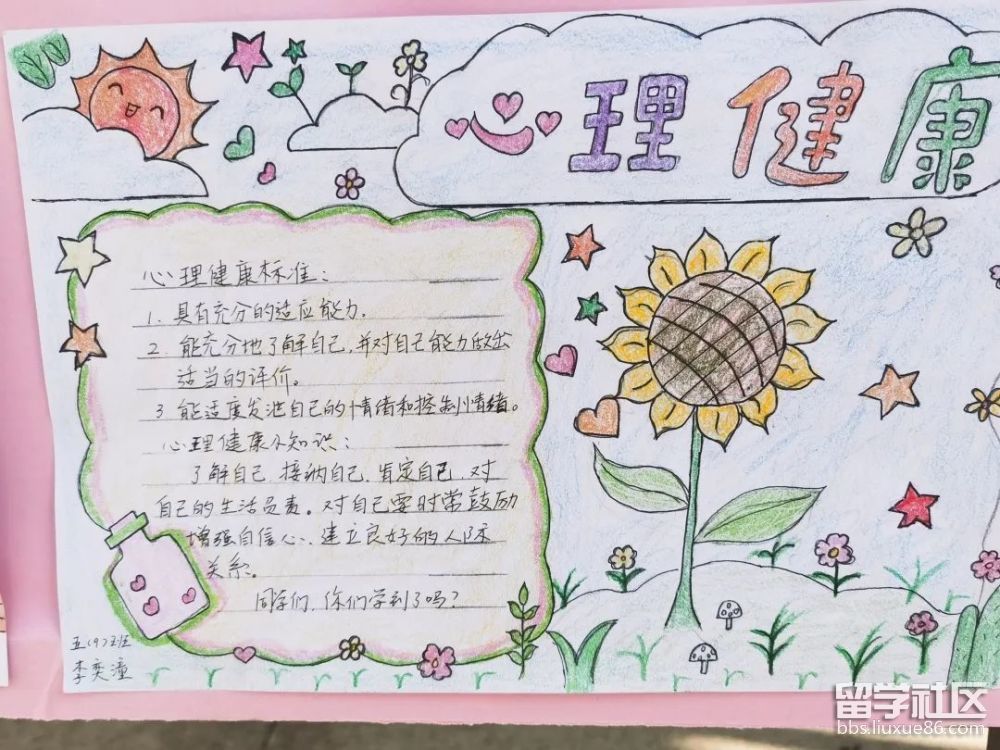 心理健康
心理健康标准：
1. 具有充分的适应能力。
2. 能充分地了解自己，并对自己能力做出
适当的评价。
3 能适度发泄自己的情绪和控制情绪。
心理健康小知识：
了解自己，接纳自己，肯定自己，对
自己的生活负责。对自己要时常鼓励
增强自信心、建立良好的人际
关系。
同学们，你们学到了吗？
五（9）班
李奕潼
留学社区
bbs.liuxue86.com